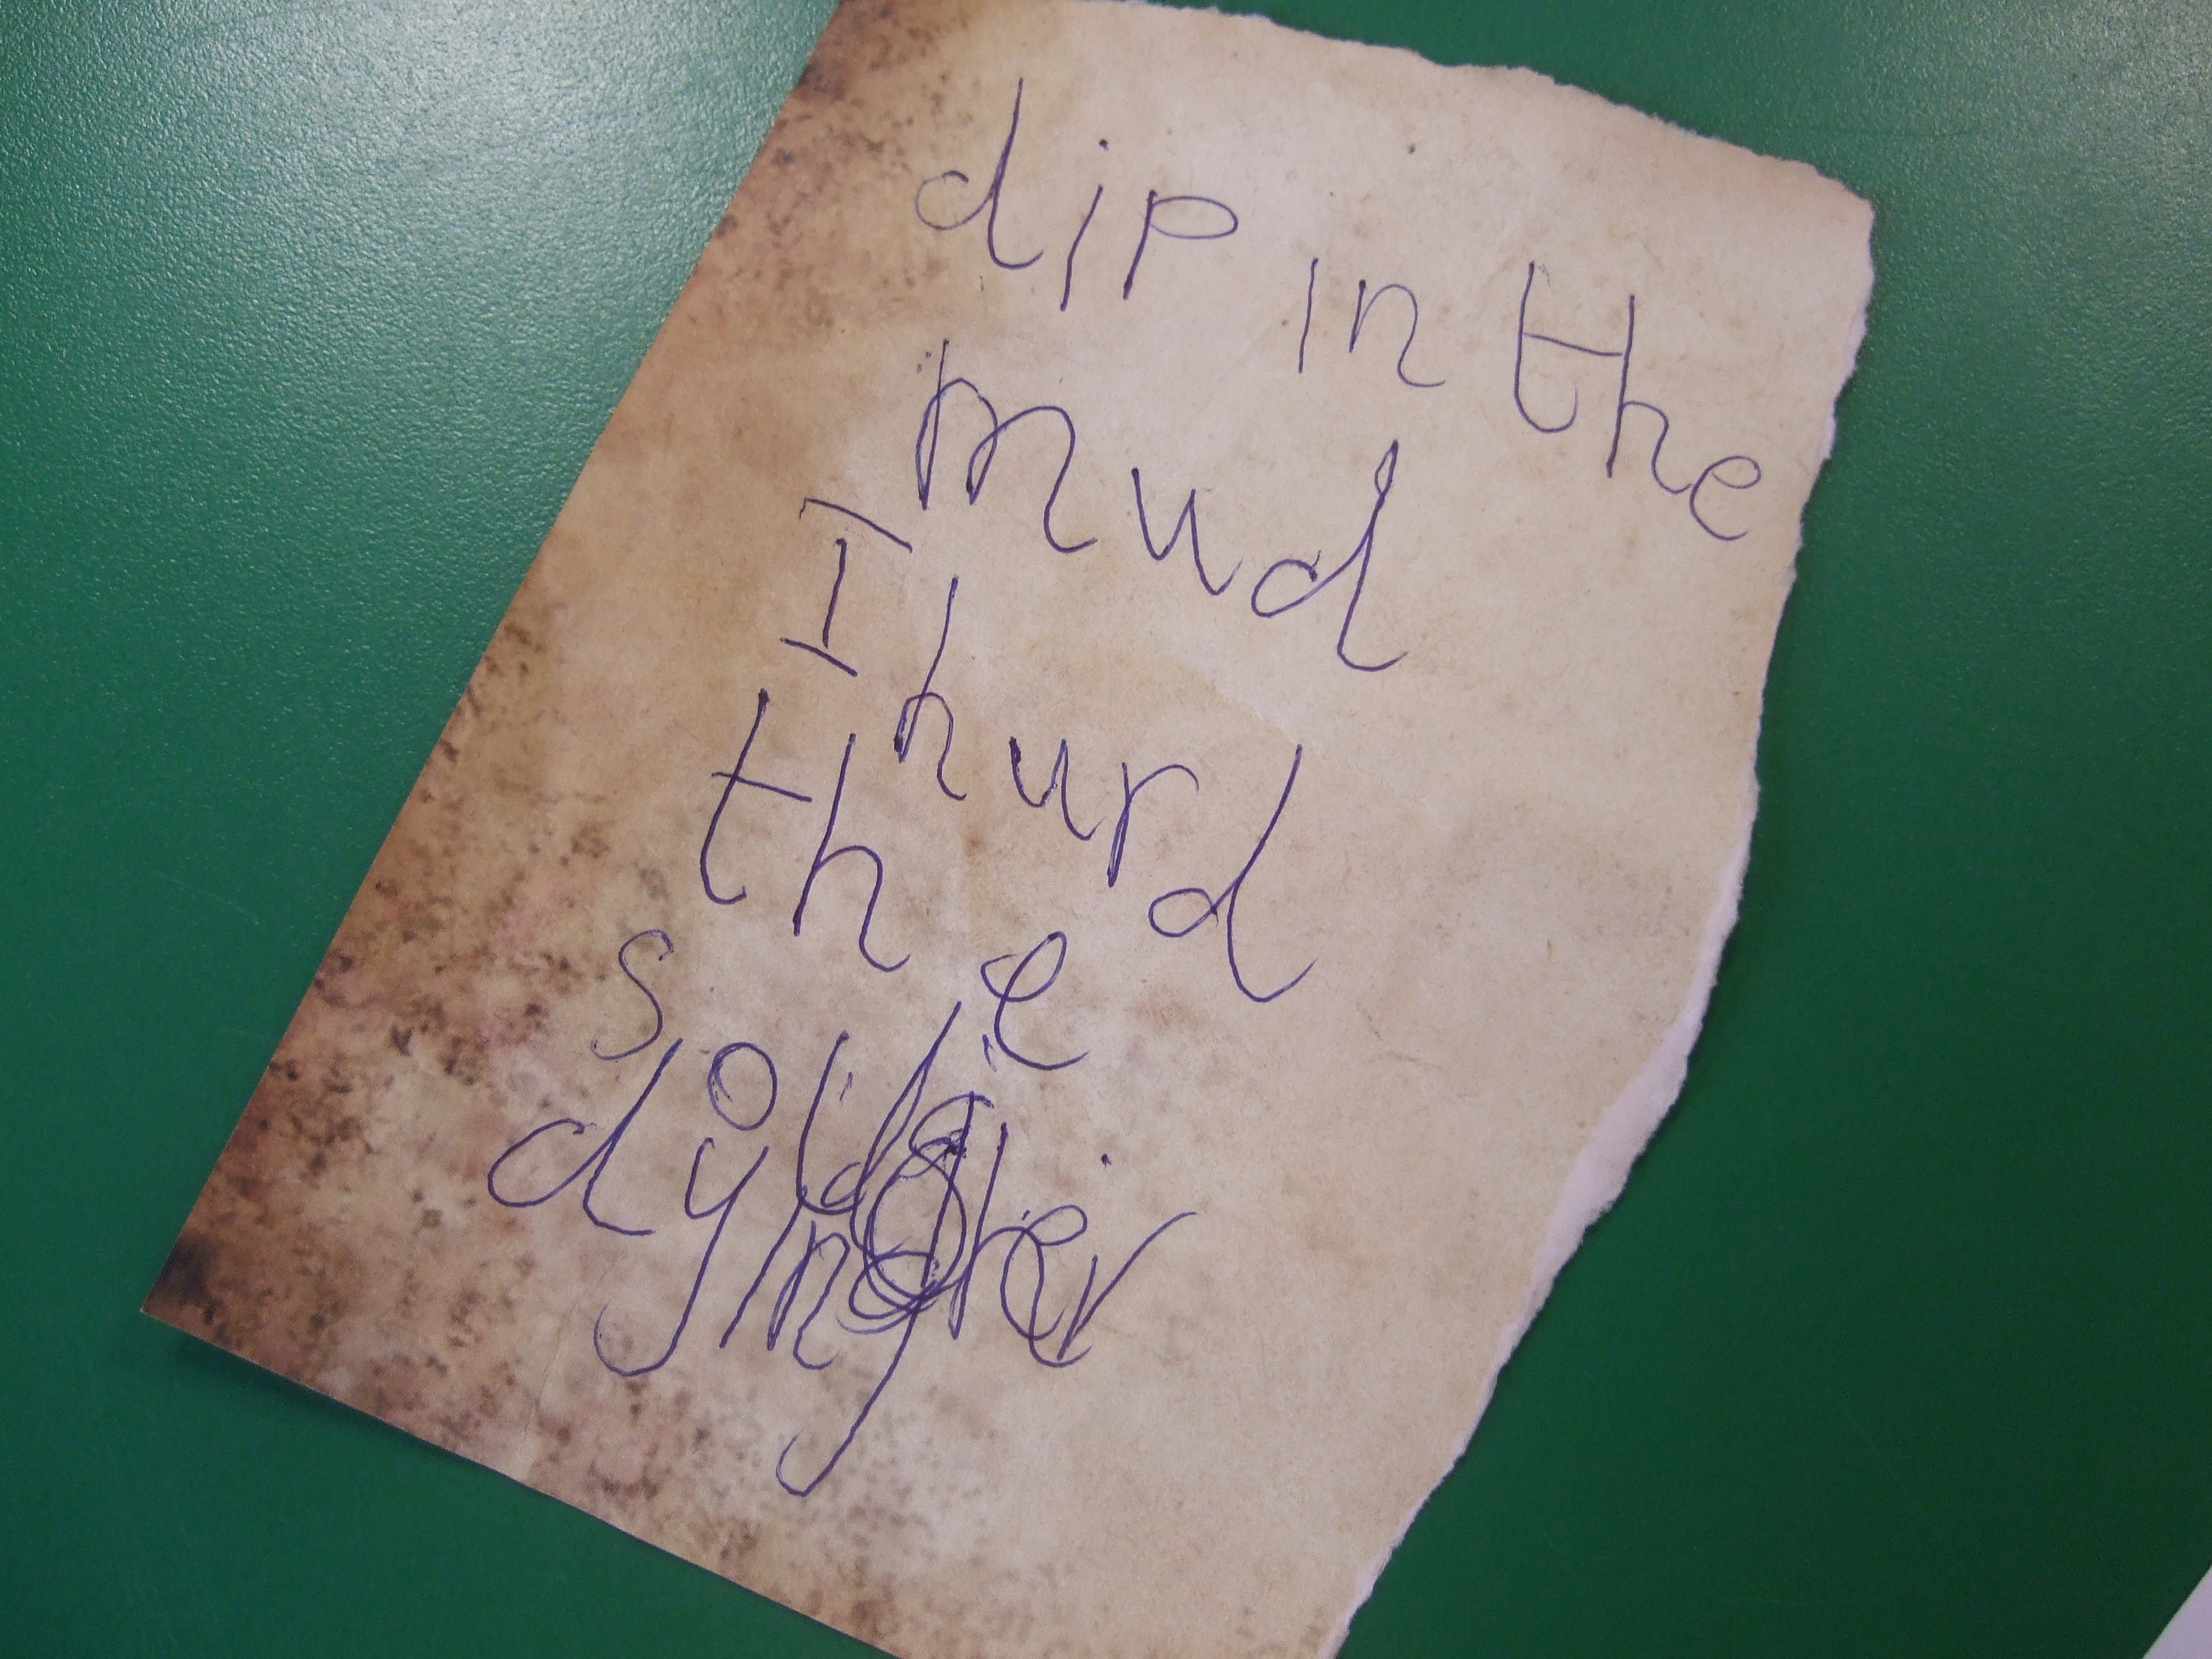 dip in the
mud
I hurd
the
dying